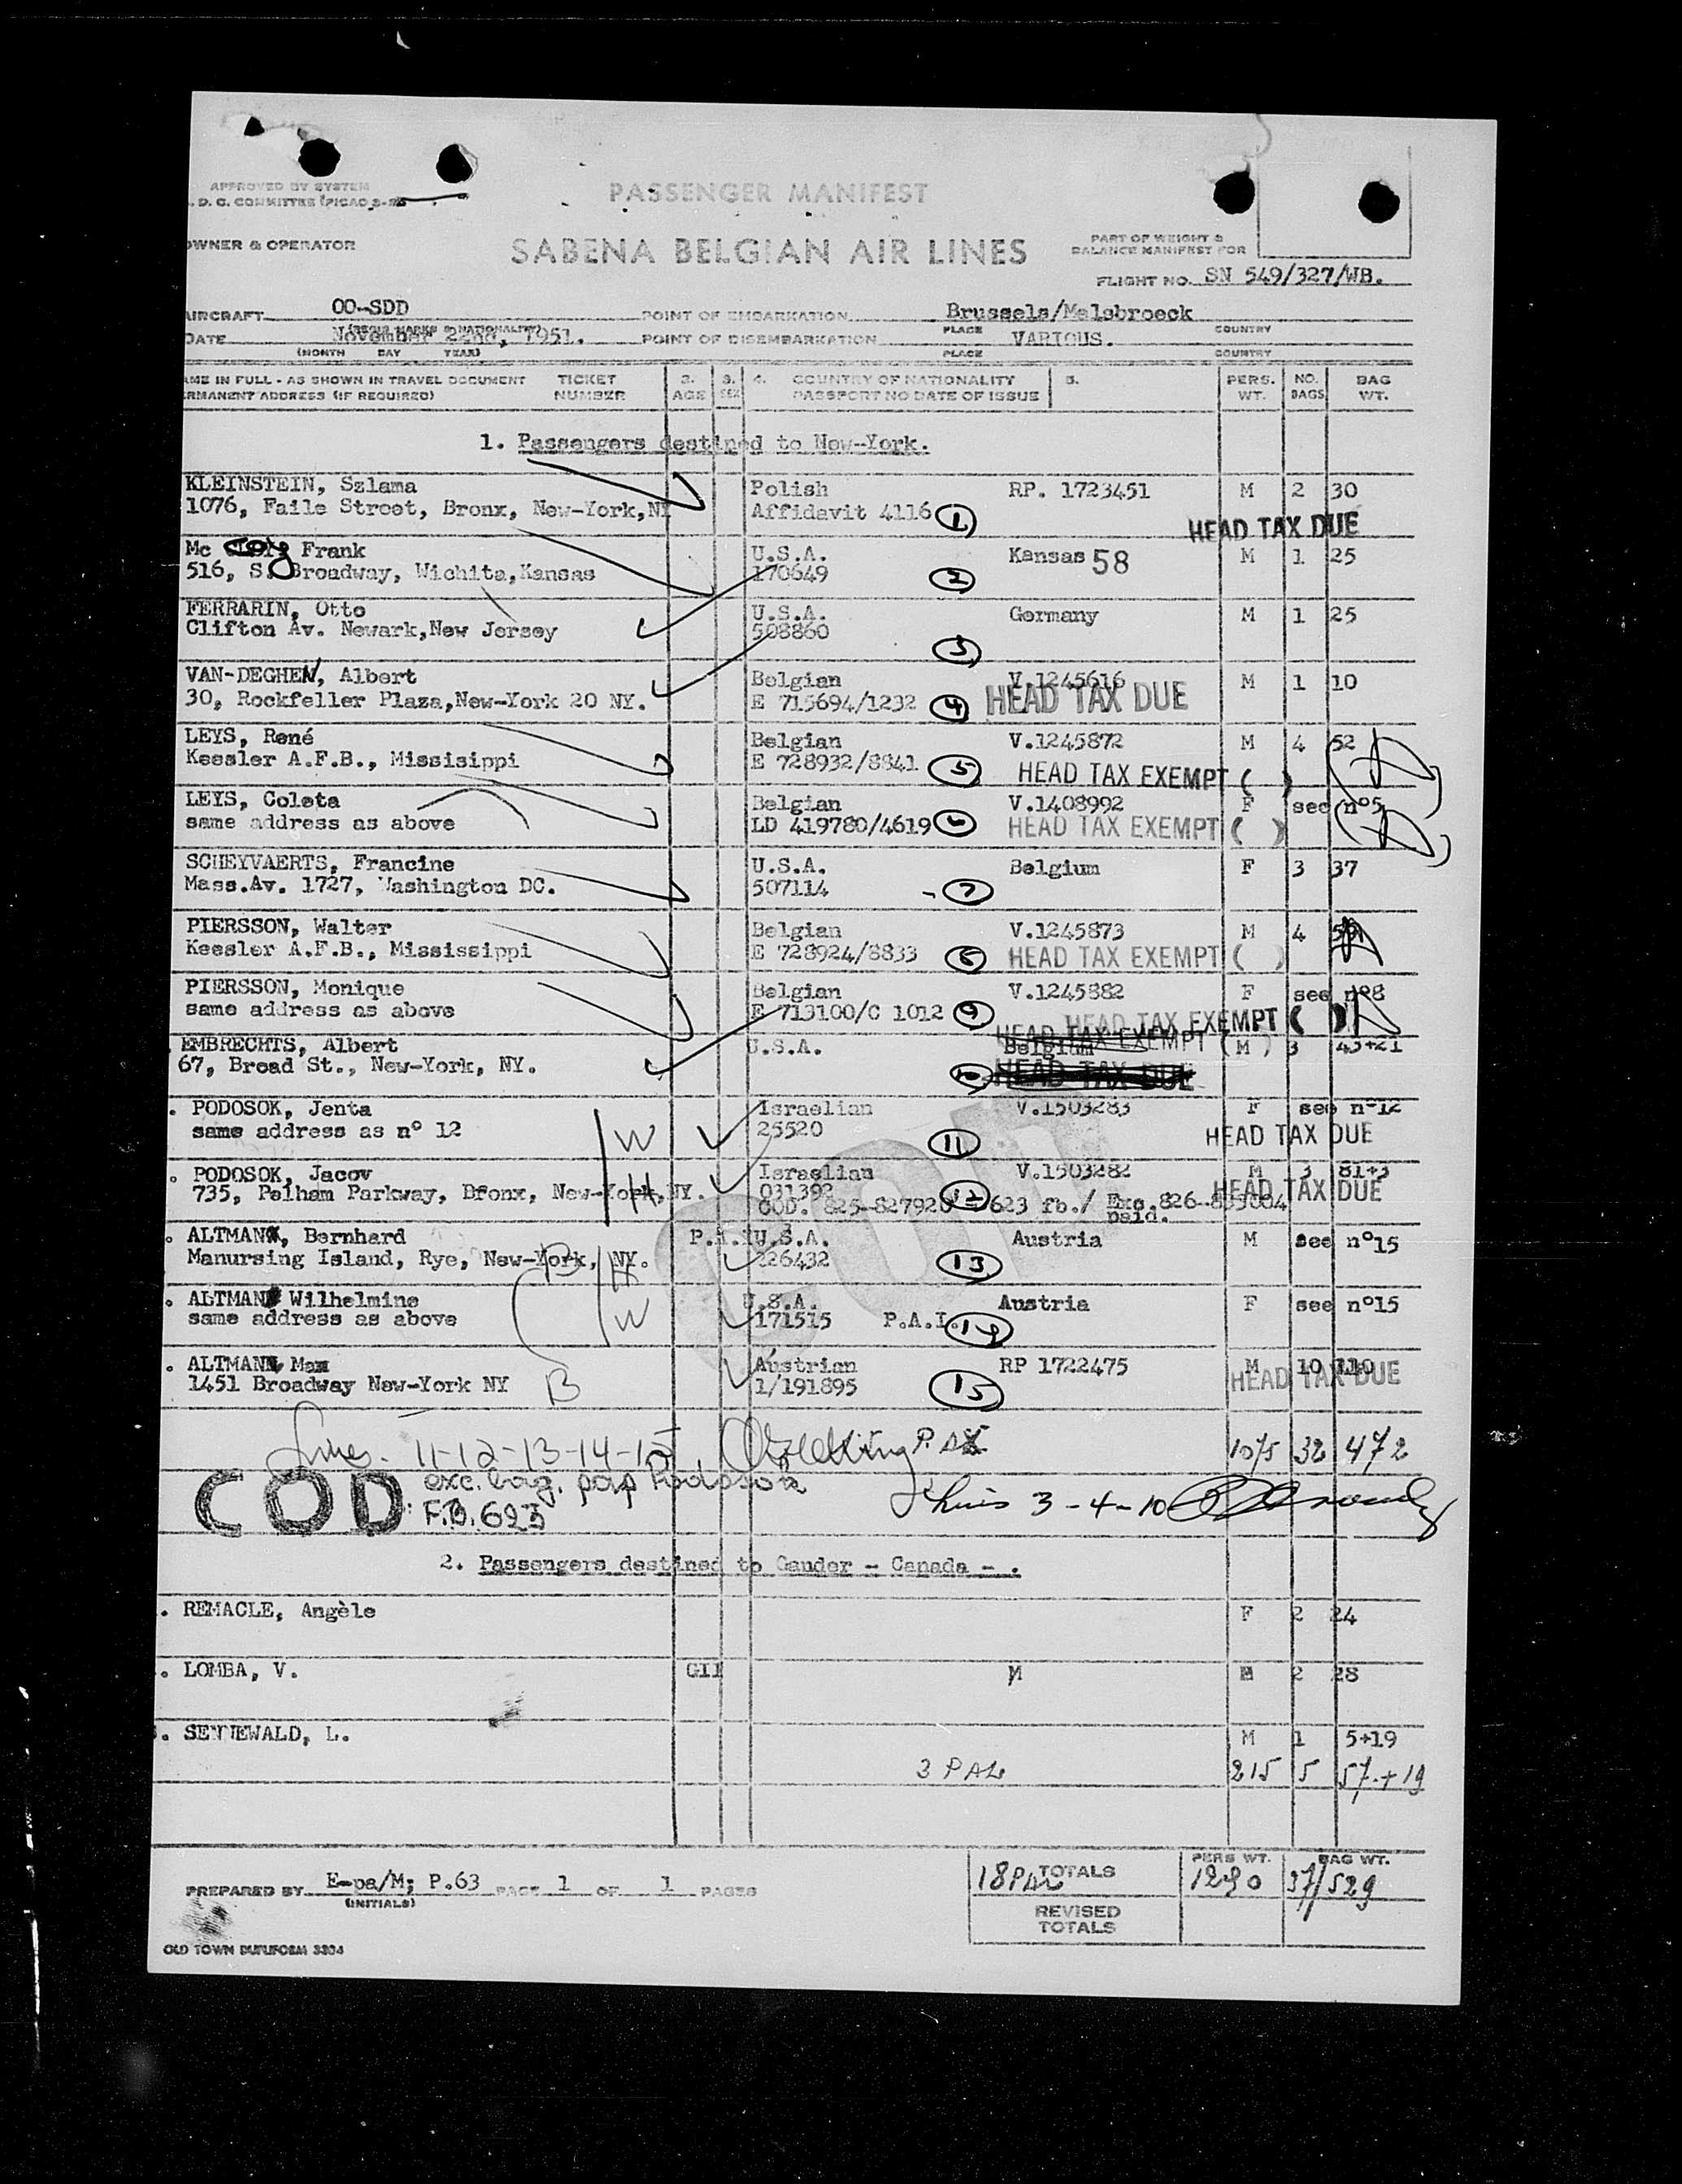 APPROVED BY SYSTEM
PASSENGER MANIFEST
D. C. COMMITTEE (PICAO
OWNER & OPERATOR
SABENA BELGIAN AIR LINES
PART OF WEIGHT &
BALANCE MANIFEST FOR
FLIGHT NO. SN 549/327/WB.
AIRCRAFT OO-SDD POINT OF EMBARKATION Brussels/Melsbroeck
(REGIS. MARKS & NATIONALITY) PLACE COUNTRY
DATE November 22nd, 1951. POINT OF DISEMBARKATION VARIOUS.
(MONTH DAY YEAR) PLACE COUNTRY
NAME IN FULL - AS SHOWN IN TRAVEL DOCUMENT TICKET 2. 3. 4. COUNTRY OF NATIONALITY 5. PERS. NO. BAG
PERMANENT ADDRESS (IF REQUIRED) NUMBER AGE SEX PASSPORT NO DATE OF ISSUE WT. BAGS WT.
1. Passengers destined to New-York.
KLEINSTEIN, Szlama Polish RP. 1723451 M 2 30
1076, Faile Street, Bronx, New-York, NY Affidavit 4116 1 HEAD TAX DUE
Mc Frank U.S.A. Kansas 58 M 1 25
516, S. Broadway, Wichita, Kansas 170649 2
FERRARIN, Otto U.S.A. Germany M 1 25
Clifton Av. Newark, New Jersey 508860 3
VAN-DEGHEN, Albert Belgian V.1245616 M 1 10
30, Rockfeller Plaza, New-York 20 NY. E 715694/1232 4 HEAD TAX DUE
LEYS, René Belgian V.1245872 M 4 52
Keesler A.F.B., Missisippi E 728932/8841 5 HEAD TAX EXEMPT ( )
LEYS, Coleta Belgian V.1408992 F see n°5
same address as above LD 419780/4619 6 HEAD TAX EXEMPT ( )
SCHEYVAERTS, Francine U.S.A. Belgium F 3 37
Mass.Av. 1727, Washington DC. 507114 7
PIERSSON, Walter Belgian V.1245873 M 4
Keesler A.F.B., Mississippi E 728924/8833 8 HEAD TAX EXEMPT ( )
PIERSSON, Monique Belgian V.1245882 F see n°8
same address as above E 713100/C 1012 9 HEAD TAX EXEMPT ( )
HEAD TAX EXEMPT ( )
EMBRECHTS, Albert U.S.A. Belgium M 3 45+21
67, Broad St., New-York, NY. 10 HEAD TAX DUE
. PODOSOK, Jenta Israelian V.1503283 F see n°12
same address as n° 12 W 25520 11 HEAD TAX DUE
. PODOSOK, Jacov Israelian V.1503282 M 3 81+3
735, Pelham Parkway, Bronx, New-York, NY. H 031392 12 HEAD TAX DUE
COD. 825-827920 = 623 fb./ Exc. 826-
paid.
. ALTMAN, Bernhard P.A.I U.S.A. Austria M see n°15
Manursing Island, Rye, New-York, NY. B H 226432 13
. ALTMAN Wilhelmine U.S.A. Austria F see n°15
same address as above W 171515 P.A.I. 14
. ALTMAN Max Austrian RP 1722475 M 10 110
1451 Broadway New-York NY B 1/191895 15 HEAD TAX DUE
COD
Lines. 11-12-13-14-15 1075 32 472
COD: exc. bag. pap Podosok
F.B. 623
Lines 3-4-10
2. Passengers destined to Gander - Canada - .
. REMACLE, Angèle F 2 24
. LOMBA, V. GII M M 2 28
. SENNEWALD, L. M 1 5+19
3 PAX 215 5 57+19
PREPARED BY E-pa/M; P.63 PAGE 1 OF 1 PAGES
(INITIALS)
18 PAX TOTALS PERS WT. 1290 BAG WT. 37/529
REVISED
TOTALS
OLD TOWN DUPLIFORM 3304